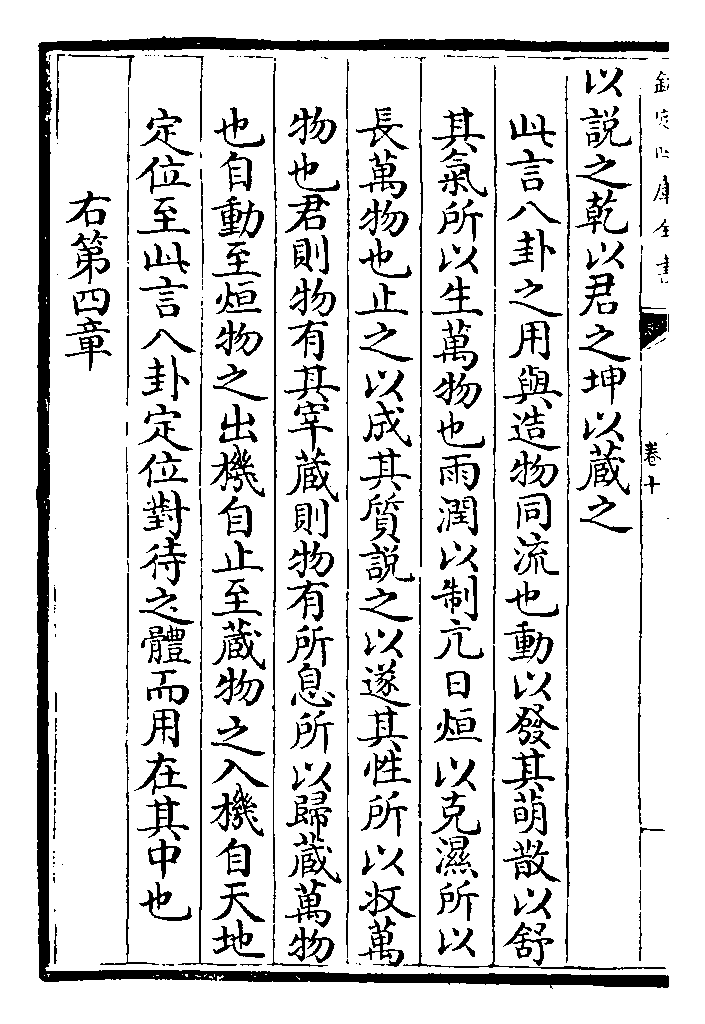 欽定四庫全書
卷十
以説之乾以君之坤以蔵之
此言八卦之用與造物同流也動以發其萌散以舒
其氣所以生萬物也雨潤以制亢日烜以克濕所以
長萬物也止之以成其質説之以遂其性所以收萬
物也君則物有其宰蔵則物有所息所以歸蔵萬物
也自動至烜物之出機自止至蔵物之入機自天地
定位至此言八卦定位對待之體而用在其中也
右第四章